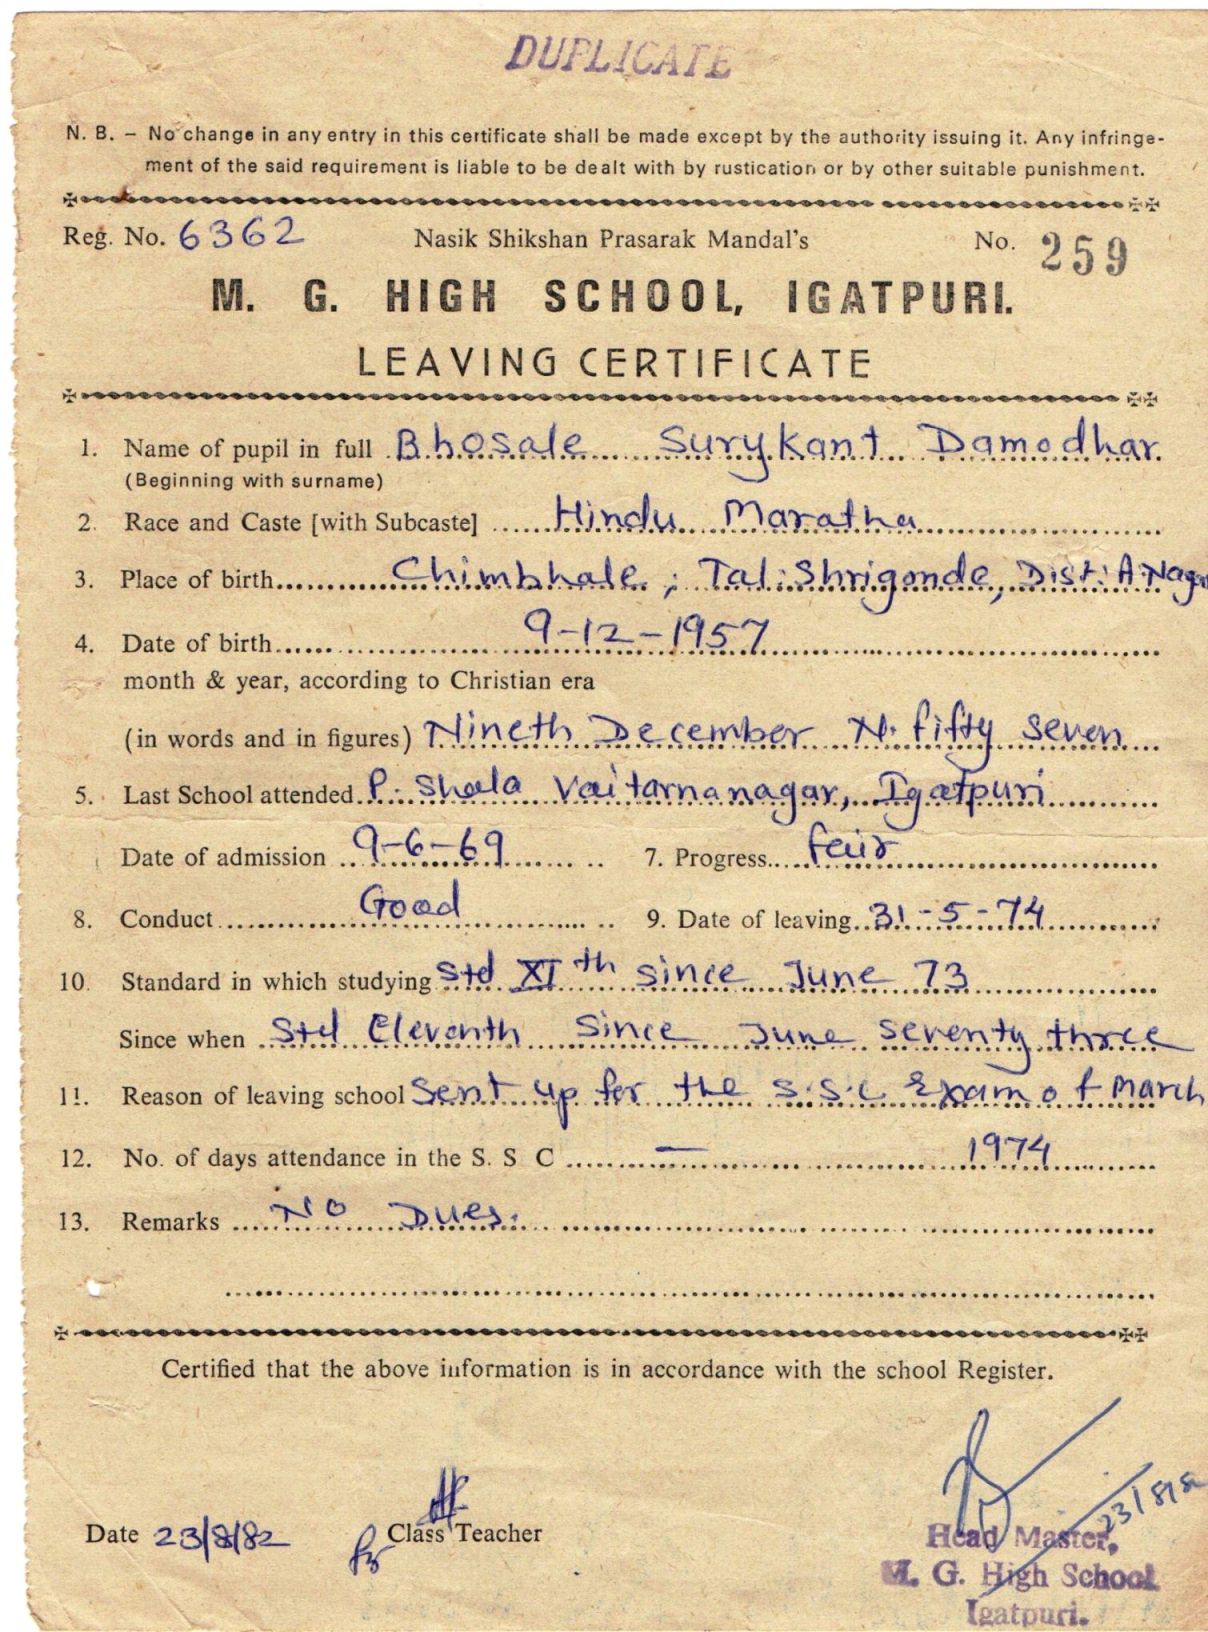 DUPLICATE
N. B. – No change in any entry in this certificate shall be made except by the authority issuing it. Any infringe-
ment of the said requirement is liable to be dealt with by rustication or by other suitable punishment.
Reg. No. 6362 Nasik Shikshan Prasarak Mandal's No. 259
M. G. HIGH SCHOOL, IGATPURI.
LEAVING CERTIFICATE
1. Name of pupil in full Bhosale Surykant Damodhar
(Beginning with surname)
2. Race and Caste [with Subcaste] Hindu Maratha
3. Place of birth Chimbhale ; Tal: Shrigonde, Dist: A.Nagar
4. Date of birth 9-12-1957
month & year, according to Christian era
(in words and in figures) Nineth December N. fifty seven
5. Last School attended P. Shala Vaitarnanagar, Igatpuri
Date of admission 9-6-69 7. Progress fair
8. Conduct Good 9. Date of leaving 31-5-74
10. Standard in which studying Std XIth since June 73
Since when Std Eleventh Since June seventy three
11. Reason of leaving school Sent up for the S.S.C Exam of March
12. No. of days attendance in the S. S C — 1974
13. Remarks No Dues.
Certified that the above information is in accordance with the school Register.
23/8/82
Date 23/8/82 Class Teacher Head Master,
M. G. High School
Igatpuri.